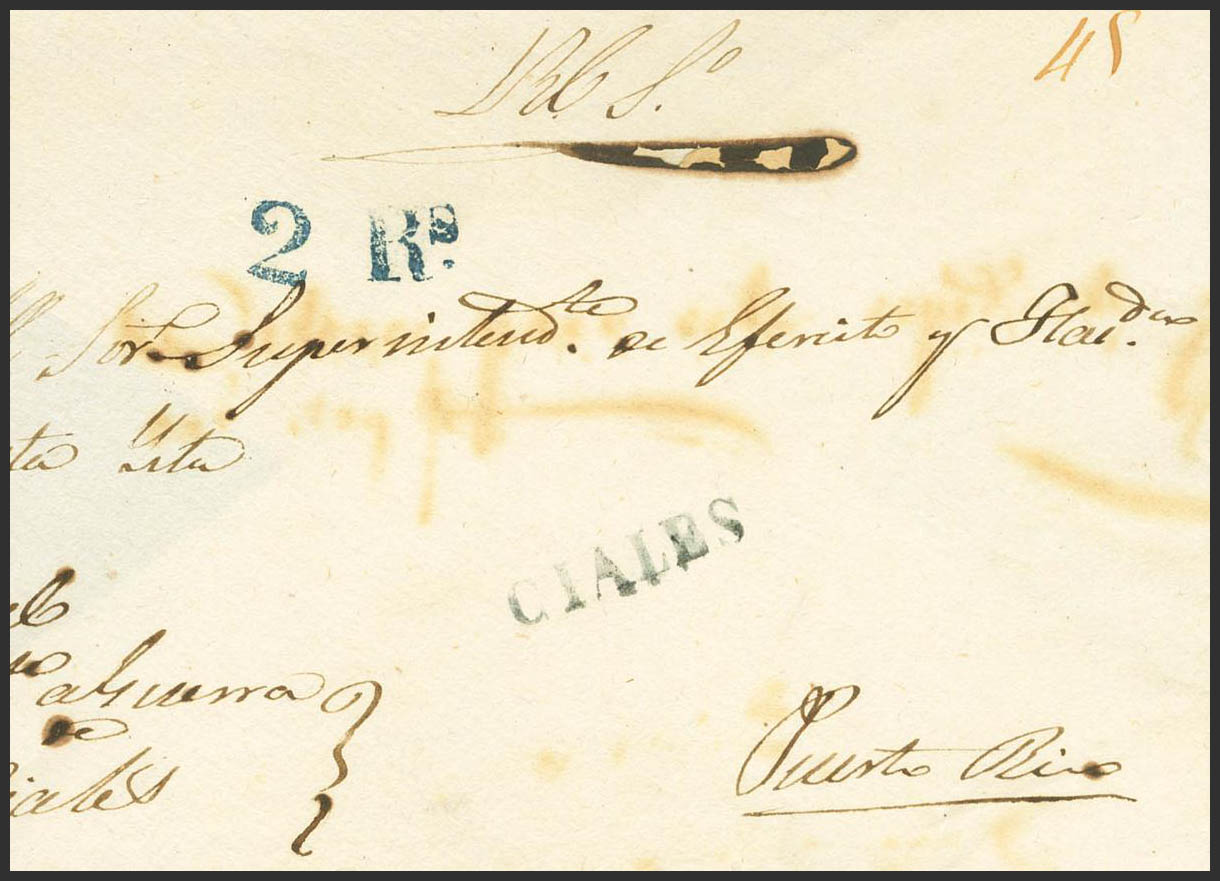 Rl. So.
45
2 Rs.
Sor. Superintendte. de Ejercito y Hacda.
Ysta
CIALES
a Guerra
de
Ciales
Puerto Rico